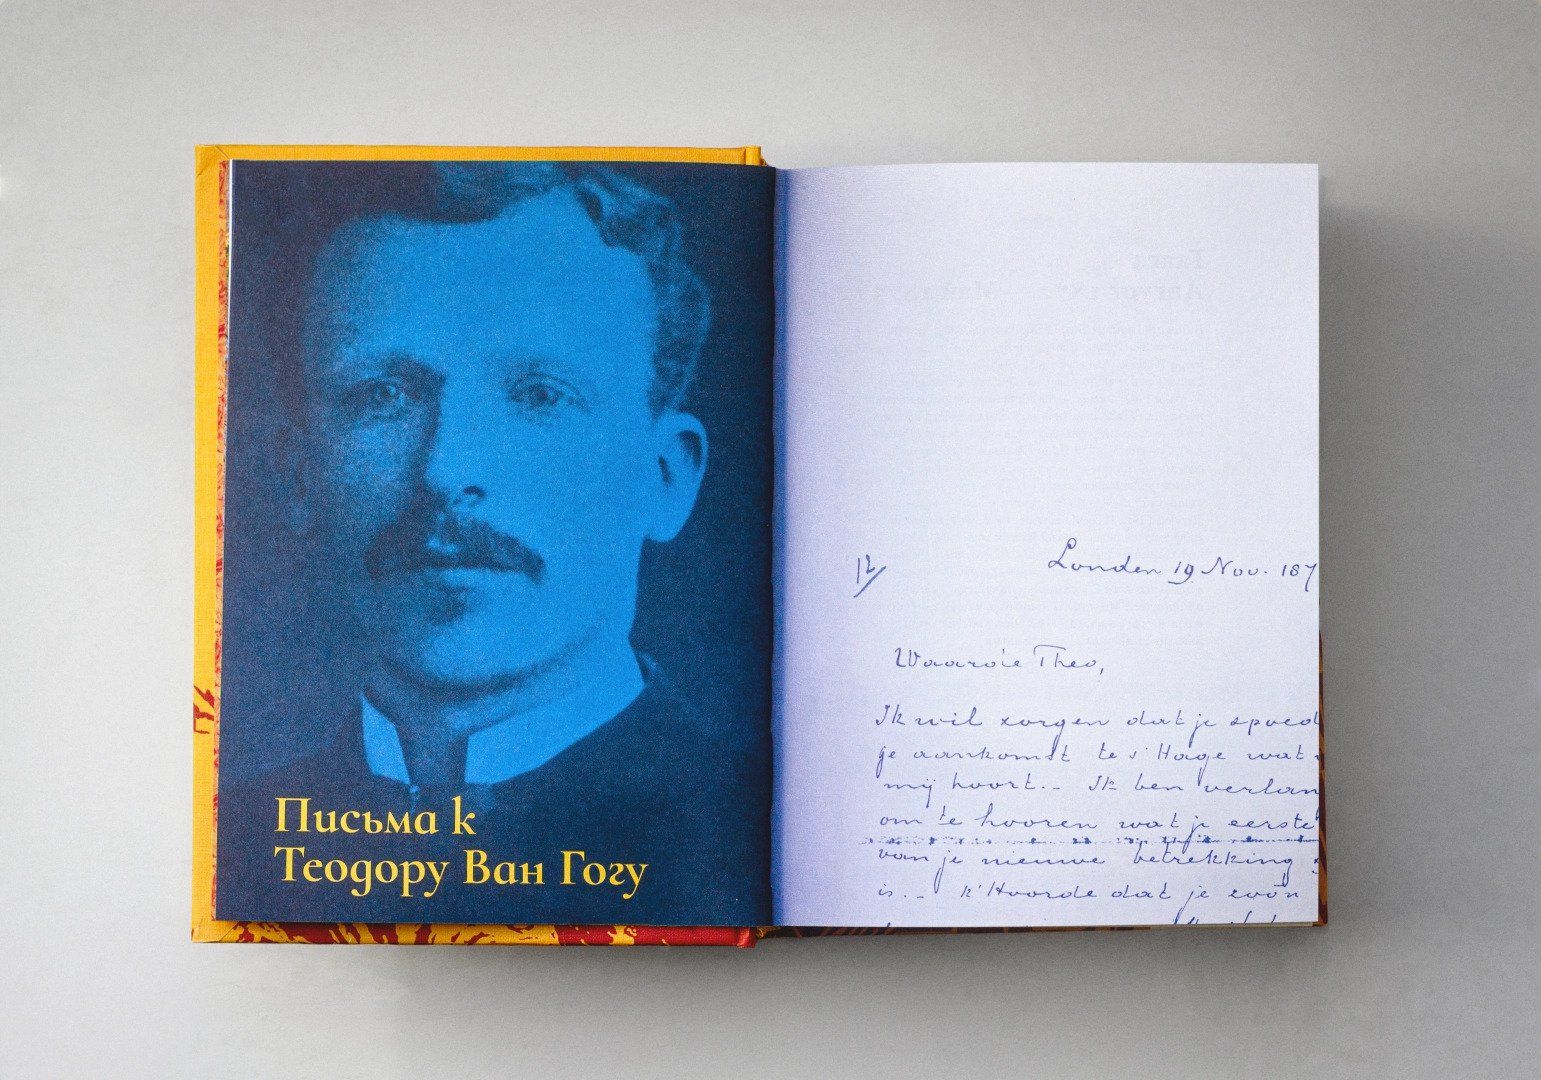 Письма к
Теодору Ван Гогу
12/
Londen 19 Nov. 187
Waarde Theo,
Ik wil zorgen dat je spoed
je aankomst te s'Hage wat
mij hoort. _ Ik ben verlan
om te hooren wat je eerste
van je nieuwe betrekking
is. _ k'Hoorde dat je zoo'n